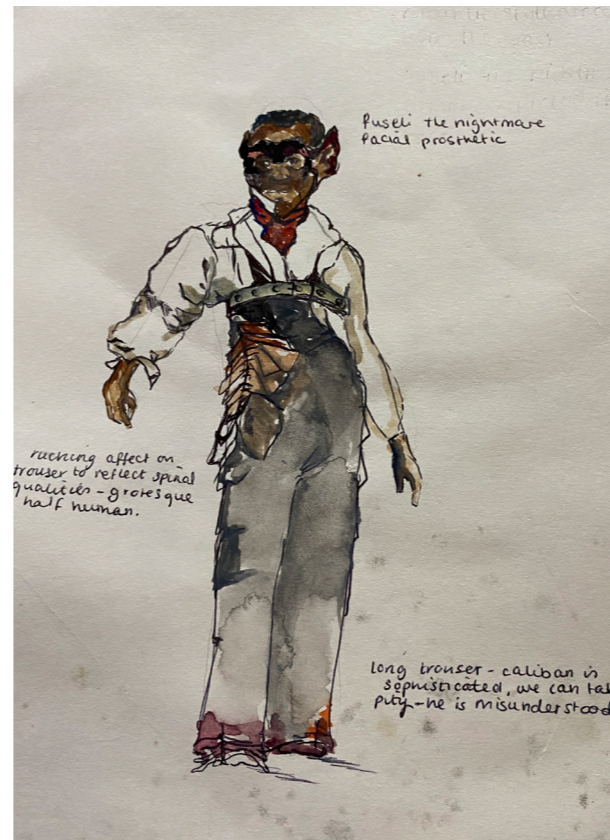 Fuseli the nightmare
facial prosthetic
ruching affect on
trouser to reflect spinal
qualities - grotesque
half human.
long trouser - caliban is
sophisticated, we can
pity - he is misunderstood